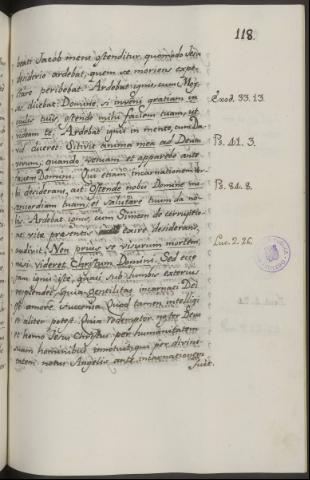 118.
beati Jacob mens ostenditur, quomodo Jesu
desiderio ardebat, quem se moriens expe-
ctare perhibebat. Ardebat ignis, cum Moy-
ses dicebat: Domine, si inveni gratiam in
oculis tuis, ostende mihi faciem tuam, ut
videam te. Ardebat ignis in mente, cum Da-
vid diceret: Sitivit anima mea ad Deum
vivum, quando veniam et apparebo ante
faciem Domini. Qui etiam incarnationem
desiderans, ait: Ostende nobis Domine mi-
sericordiam tuam, et salutare tuum da no-
bis. Ardebat ignis, cum Simeon de corruptio-
ne vitæ præsentis exire desiderans,
audivit, Non prius se visurum mortem,
nisi videret Christum Domini. Sed ecce
jam igni iste, quasi sub lumbis exterius
respondet, quia gentilitas incarnati Dei
amore Quod tamen intelligi
et aliter potest. Quia redemptor noster Deus
et homo Jesus Christus per humanitatem
suam hominibus innotuit, qui per divini-
tatem notus Angelis ante incarnationem
fuit.
Exod. 33. 13.
Ps. 41. 3.
Ps. 84. 8.
Luc. 2. 26.